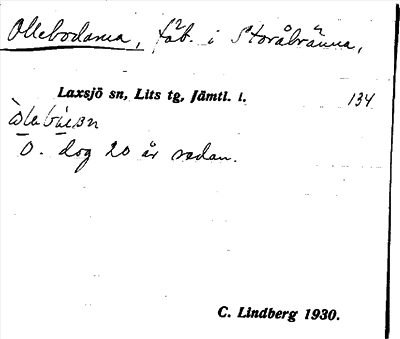 Ollebodarna, fäb. i Storåbränna,
Laxsjö sn, Lits tg, Jämtl. l. 134
O. dog 20 år sedan.
C. Lindberg 1930.